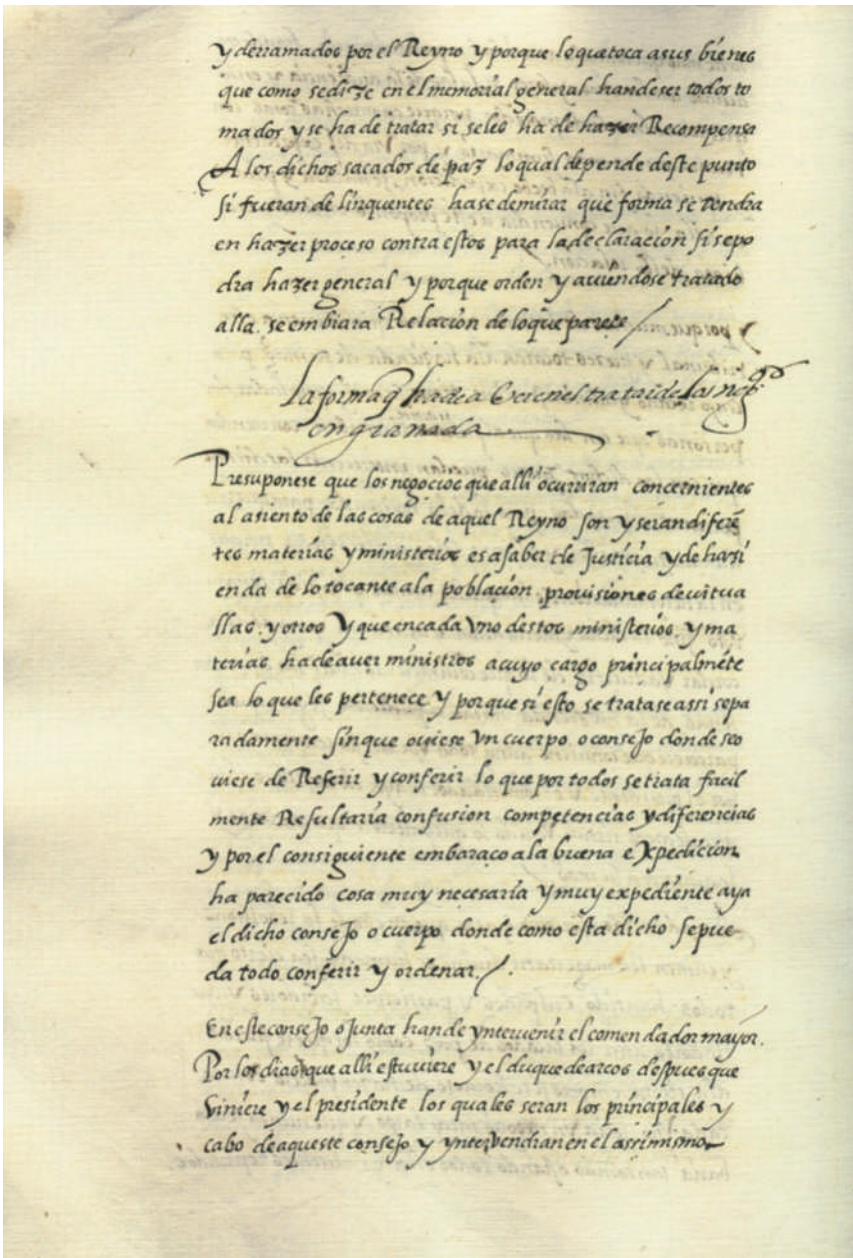 y derramados por el Reyno y porque lo que toca a sus bienes
que como se dize en el memorial general han de ser todos to
mados y se ha de tratar si se les ha de hazer Recompensa
A los dichos sacados de paz lo qual depende deste punto
si fueran delinquentes hase de mirar que forma se tendra
en hazer proceso contra estos para la declaracion si se po
dra hazer general y porque orden y aviendose tratado
alla se embiara Relacion de lo que parece /
La forma q̃ ha de aver en el tratar de los neg.os
en granada
Presuponese que los negocios que alli ocurriran concernientes
al asiento de las cosas de aquel Reyno son y seran diferẽ
tes materias y ministerios es a saber de Justicia y de hazi
enda de lo tocante a la poblacion provisiones de vitua
llas y otros y que en cada vno destos ministerios y ma
terias ha de aver ministros a cuyo cargo principalmẽte
sea lo que les pertenece y porque si esto se tratase assi sepa
radamente sin que oviese vn cuerpo o consejo donde se o
viese de Referir y conferir lo que por todos se trata facil
mente Resultaria confusion competencias y diferencias
y por el consiguiente embaraço a la buena expedicion
ha parecido cosa muy necesaria y muy expediente aya
el dicho consejo o cuerpo donde como esta dicho se pue
da todo conferir y ordenar. /.
En este consejo o Junta han de yntervenir el comendador mayor.
Por los dias que alli estuviere y el duque de arcos despues que
viniere y el presidente los quales seran los principales y
cabo de aqueste consejo y yntervendran en el assimismo